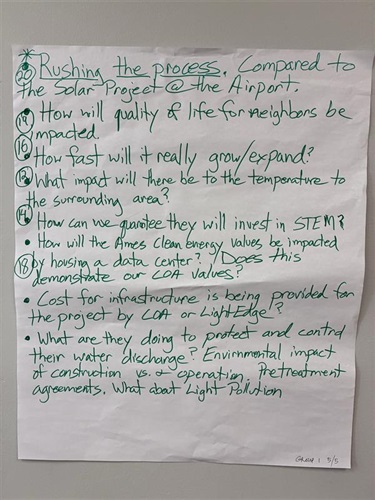 * 20 Rushing the process. Compared to
the Solar Project @ the Airport.
19 How will quality of life for neighbors be
impacted.
16 How fast will it really grow/expand?
What impact will there be to the temperature to
the surrounding area?
14 How can we guarantee they will invest in STEM?
• How will the Ames clean energy values be impacted
18 by housing a data center? / Does this
demonstrate our COA values?
• Cost for infrastructure is being provided for
the project by COA or LightEdge?
• What are they doing to protect and control
their water discharge? Envirnmental impact
of construction vs. operation. Pretreatment
agreements. What about Light Pollution